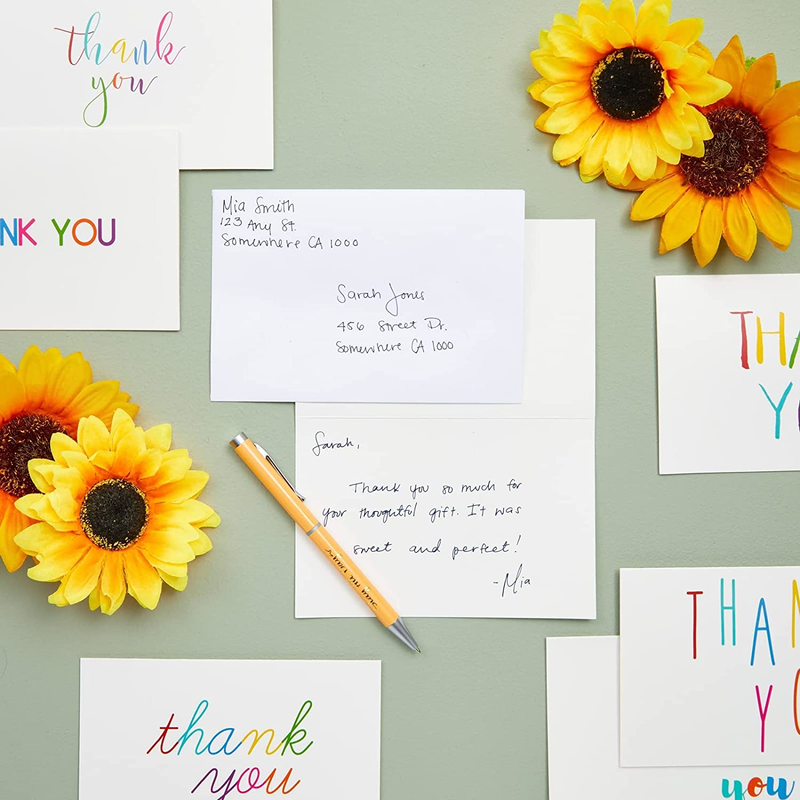 thank
you
NK YOU
Mia Smith
123 Any St.
Somewhere CA 1000
Sarah Jones
456 Street Dr.
Somewhere CA 1000
THA
YO
Sarah,
Thank you so much for
your thoughtful gift. It was
sweet and perfect!
-Mia
THAN
YO
you
thank
you